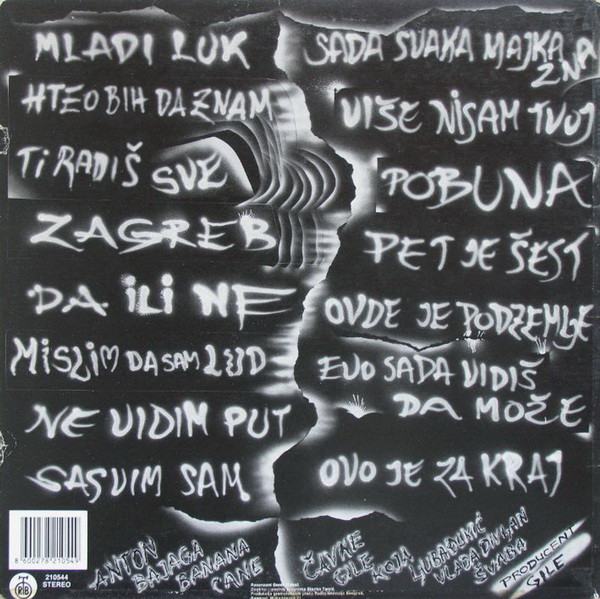 MLADI LUK
HTEO BIH DA ZNAM
Ti RADIŠ SVE
ZAGREB
DA iLi NE
MiSLiM DA SAM LUD
NE VIDIM PUT
SASVIM SAM
SADA SVAKA MAJKA
ZNA
VIŠE NISAM TVOJ
POBUNA
PET JE ŠEST
OVDE JE PODZEMLJE
EVO SADA VIDIŠ
DA MOŽE
OVO JE ZA KRAJ
ANTON
BAJAGA
BANANA
CANE
ČAVKE
GILE
KOJA
VLADA DIVLJAN
ŠVABA
PRODUCENT
GILE
8"600278"210549"
RTB
210544
STEREO